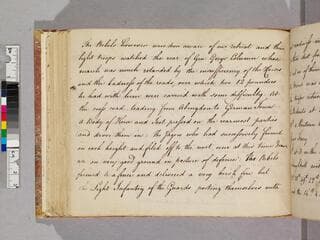 The Rebels however was soon aware of our retreat and their
light troops watched the rear of Genl Greys Column whose
march was much retarded by the insufficiency of the Horses
and the badness of the roads, over which two 12 pounders
he had with him were carried with some difficulty. At
the cross road leading from Abingdon to German Town
a Body of Horse and Foot pressed on the rearmost parties
and drove them in. The Jagers who had successively formed
on each height and filed off to the next were at this time drawn
up on very good ground in posture of defence. The Rebels
formed to a fence and delivered a very brisk fire but
the Light Infantry of the Guards posting themselves with